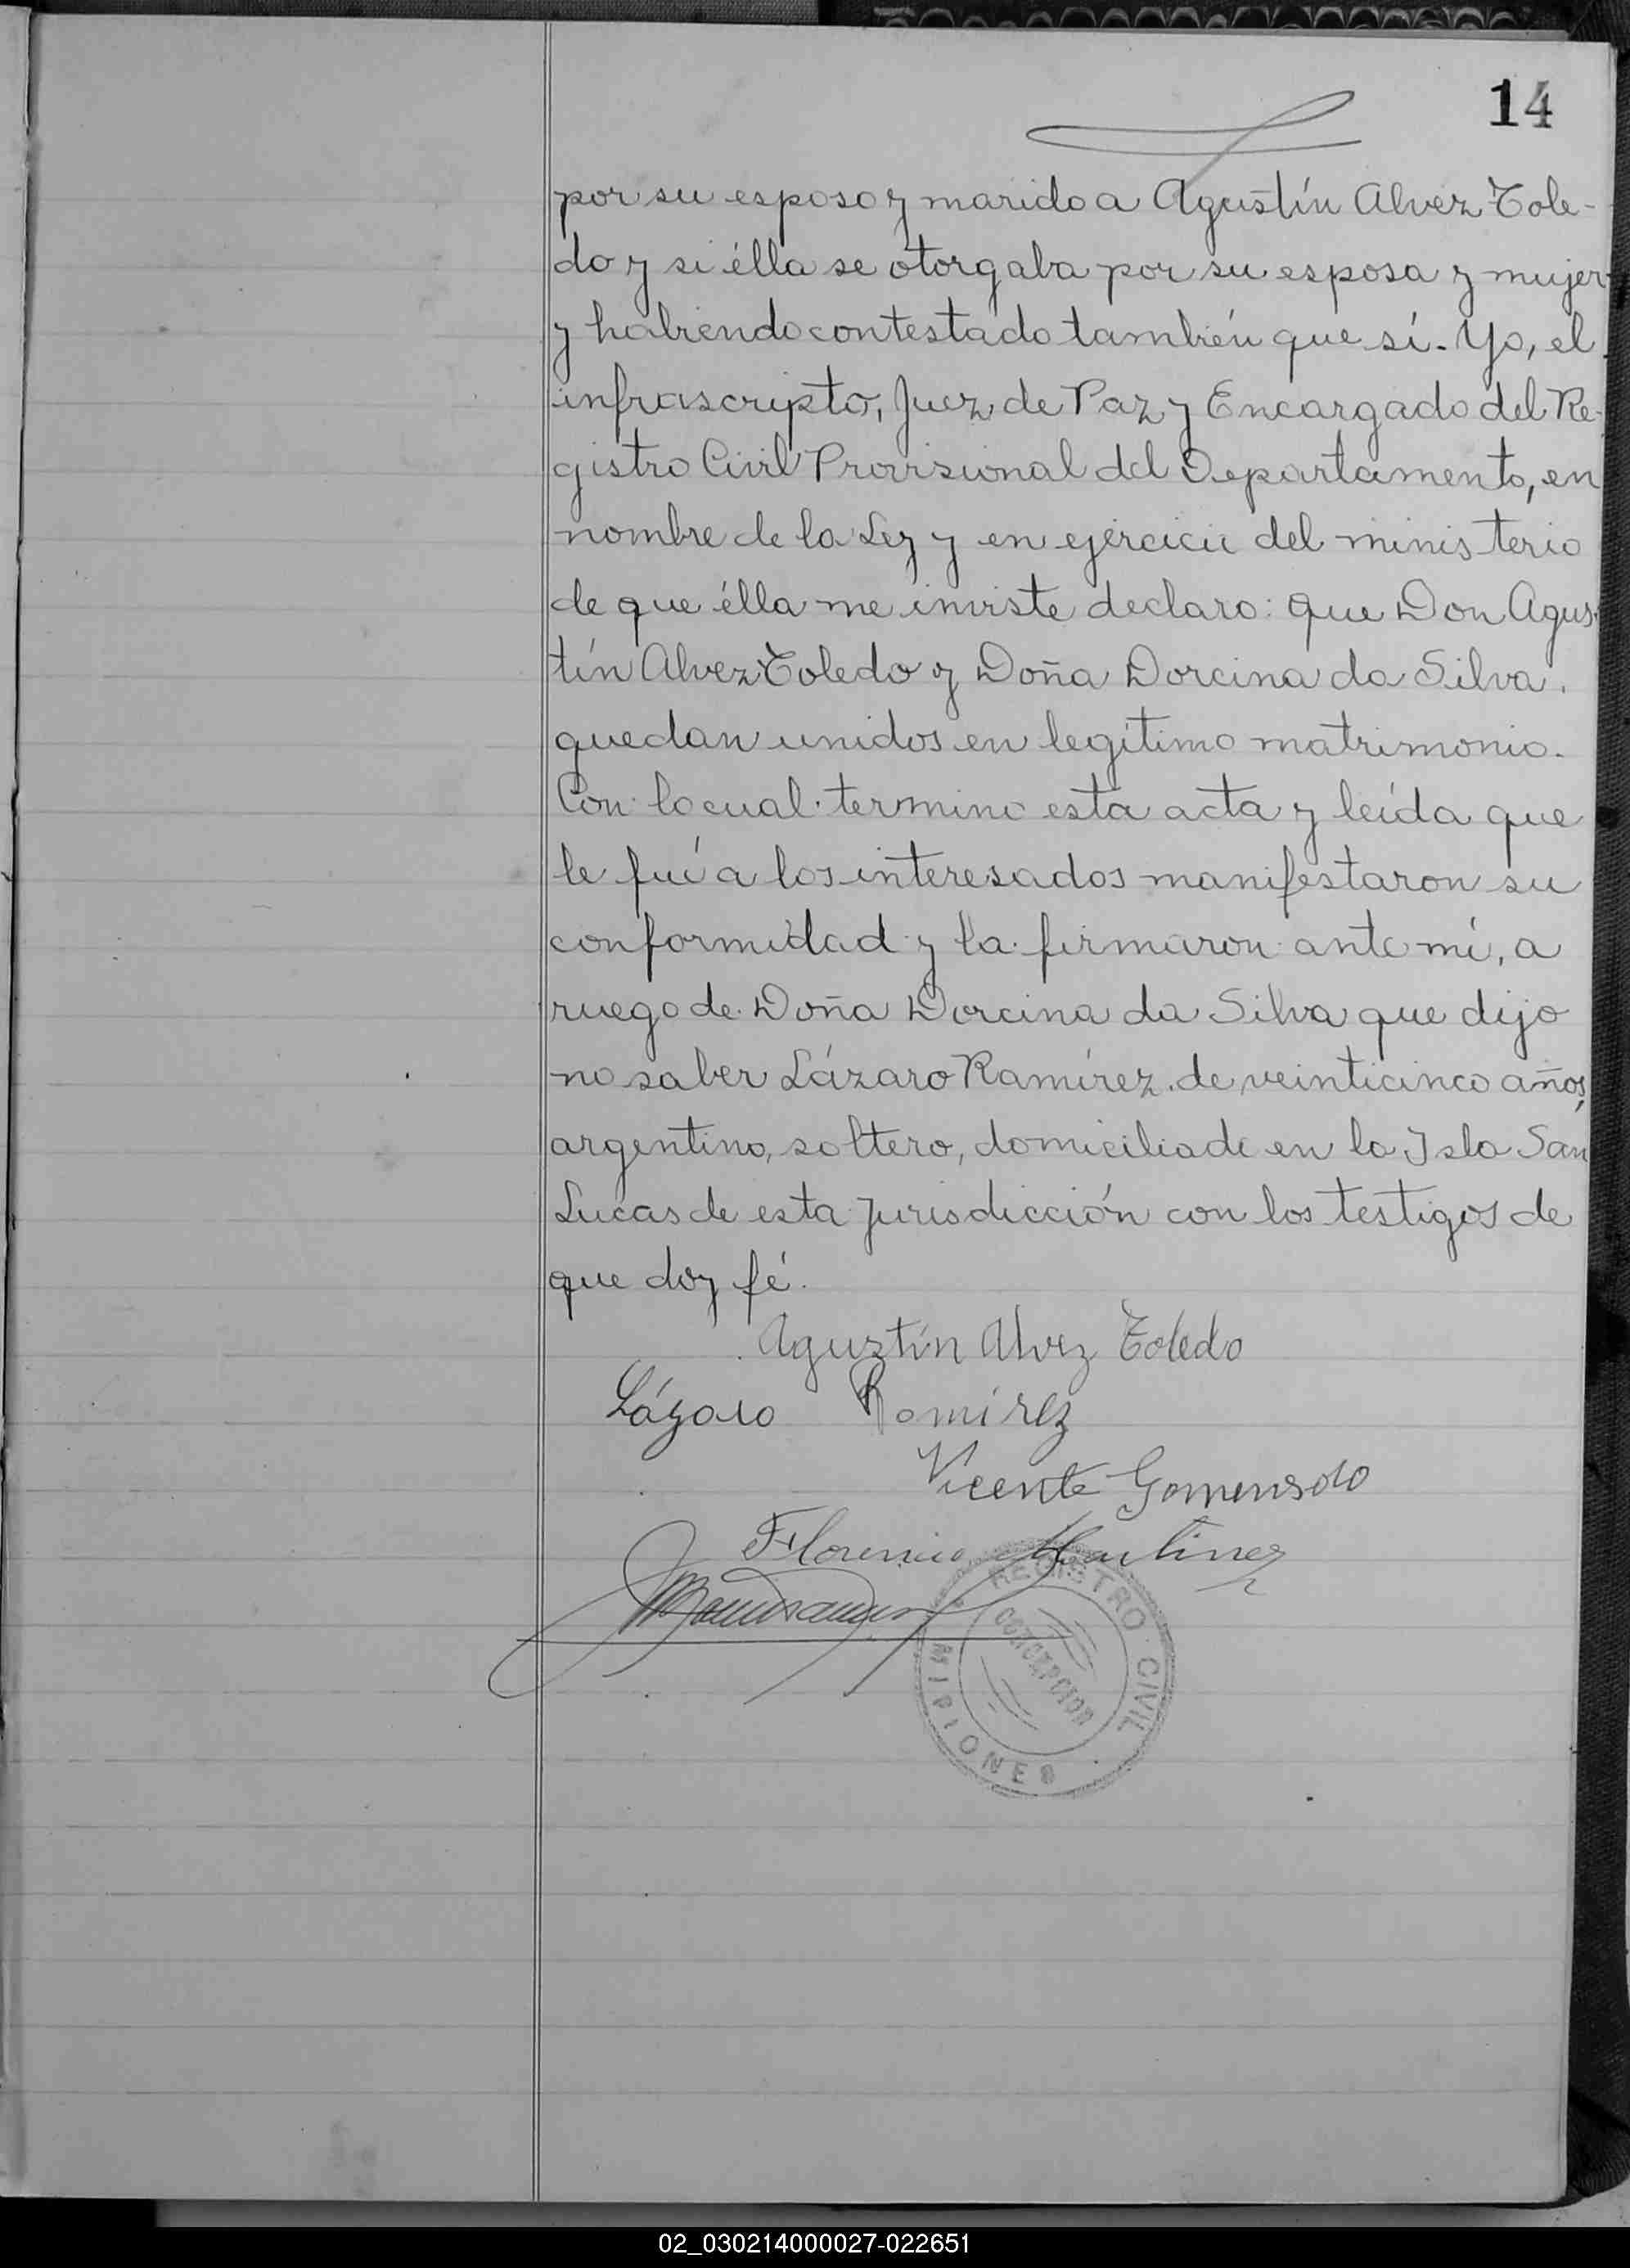 14
por su esposo y marido a Agustín Alvez Tole-
do y si élla se otorgaba por su esposa y mujer
y habiendo contestado también que sí. Yo, el
infrascripto, Juez de Paz y Encargado del Re-
gistro Civil Provisional del Departamento, en
nombre de la Ley y en ejercicio del ministerio
de que élla me inviste declaro: que Don Agus-
tín Alvez Toledo y Doña Dorcina da Silva.
quedan unidos en legítimo matrimonio.
Con lo cual termino esta acta y leída que
le fué a los interesados manifestaron su
conformidad y la firmaron ante mí, a
ruego de Doña Dorcina da Silva que dijo
no saber Lázaro Ramírez de veinticinco años,
argentino, soltero, domiciliado en la Isla San
Lucas de esta Jurisdicción con los testigos de
que doy fé.
Agustín Alvez Toledo
Lázaro Ramírez
Vicente Gomensoro
Florencio Martinez
REGISTRO CIVIL
CONCEPCION
MISIONES
02_030214000027-022651